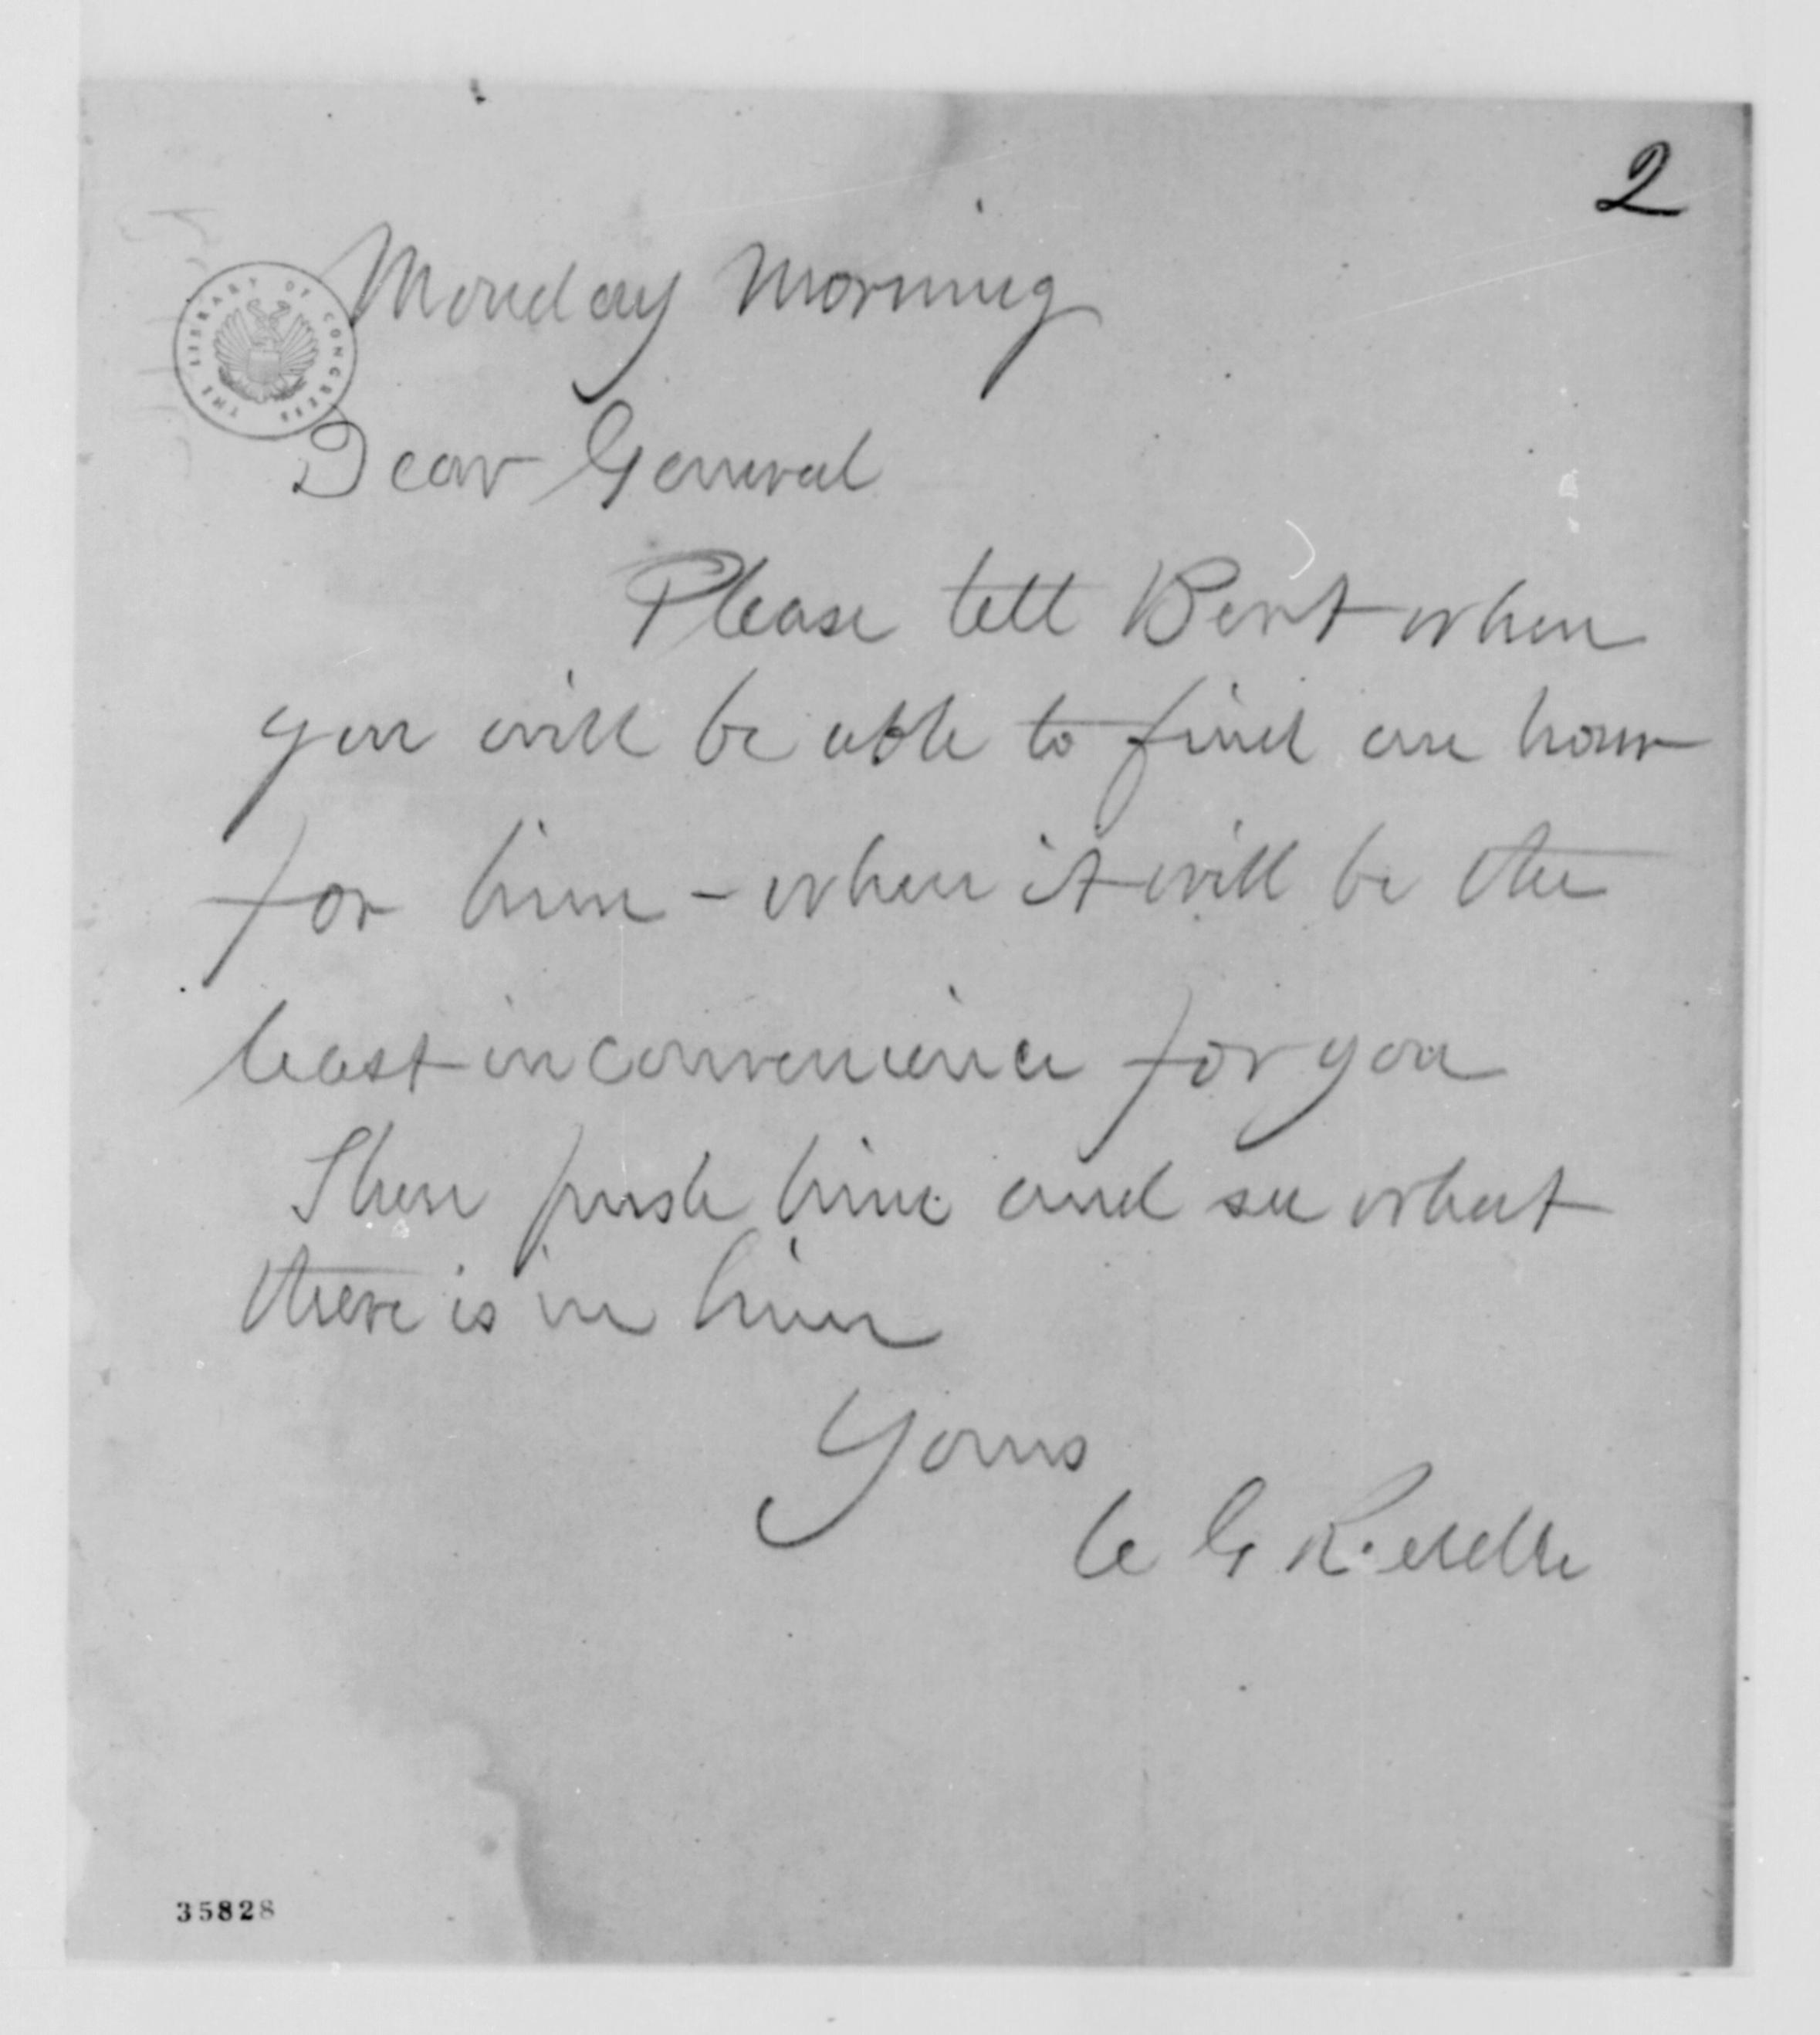 2
Monday Morning
THE LIBRARY OF CONGRESS
Dear General
Please tell Bert when
you will be able to find an hour
for him - when it will be the
least inconvenience for you
Then push him and see what
there is in him
Yours
G
35828